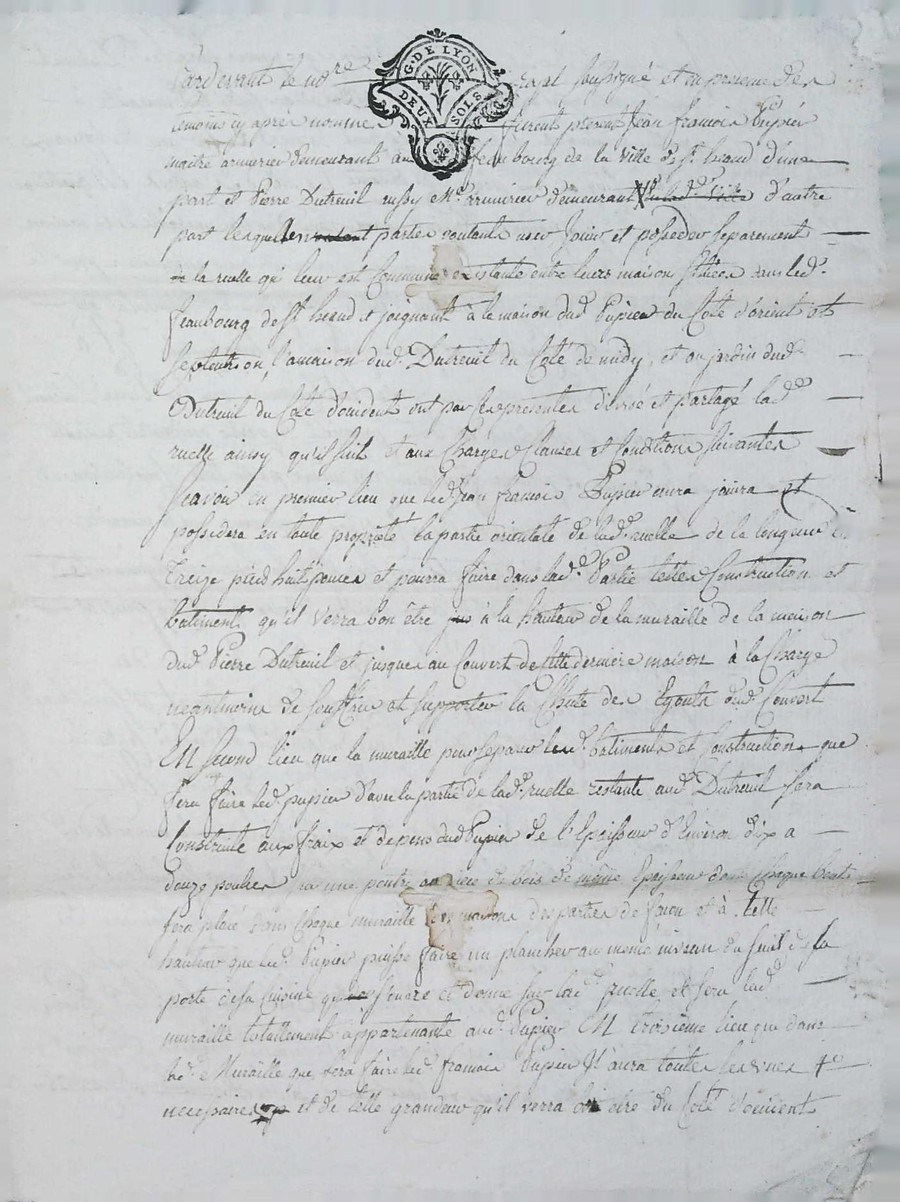 G. DE LYON
DEUX SOLS
Pardevant le no.re royal soussigné et en presence des
temoins cy après nommés furent present Jean francois Pupier
maitre armurier demeurant au feaubourg de la ville de st heand d'une
part et Pierre Dutreuil aussy M.e armurier demeurant d'autre
part lesquelles parties voulants user jouir et posseder separement
la ruelle qui leur est commune existante entre leurs maison situées dans led.
feaubourg de St heand et joignant à la maison dud. Pupier du Coté d'orient et
septentrion, la maison dud. Dutreuil du Coté de midy, et au jardin dud.
Dutreuil du Coté d'occident ont par ses presentes divisé et partagé lad.e
ruelle ainsy qu'il suit et aux Charges Clauses et Conditions suivantes
scavoir en premier lieu que led. Jean francois Pupier aura jouira et
possedera en toute proprieté la partie orientale de lad. ruelle de la longueur de
treize pied huit pouces et pourra faire dans lad.e Partie telles Construction et
batiments qu'il verra bon être à la hauteur de la muraille de la maison
dud. Pierre Dutreuil et jusques au Couvert de cette derniere maison à la Charge
neantmoins de souffrir et supporter la Chute des Egouts dud. Couvert
En second lieu que la muraille pour separer lesd. batiments et construction que
fera faire led. pupier d'avec la partie de lad. ruelle restante aud. Dutreuil sera
Construite aux fraix et depens dud Pupier de l'Epaisseur d'Environ dix a
douze pouces une poutre ou piece de bois de même Epaisseur dont chaque bout
sera placé dans chaque muraille des maisons des parties de facon et à telle
hauteur que led. Pupier puisse faire un plancher au meme niveau du seuil de la
porte de sa cuisine qui ouvre et donne sur lad. ruelle et sera lad.
muraille totallement appartenante aud. Pupier En troisieme lieu que dans
lad.e Muraille que fera faire led. francois Pupier Il aura toutes les vues
necessaires et de telle grandeur qu'il verra bon etre du Coté d'occident